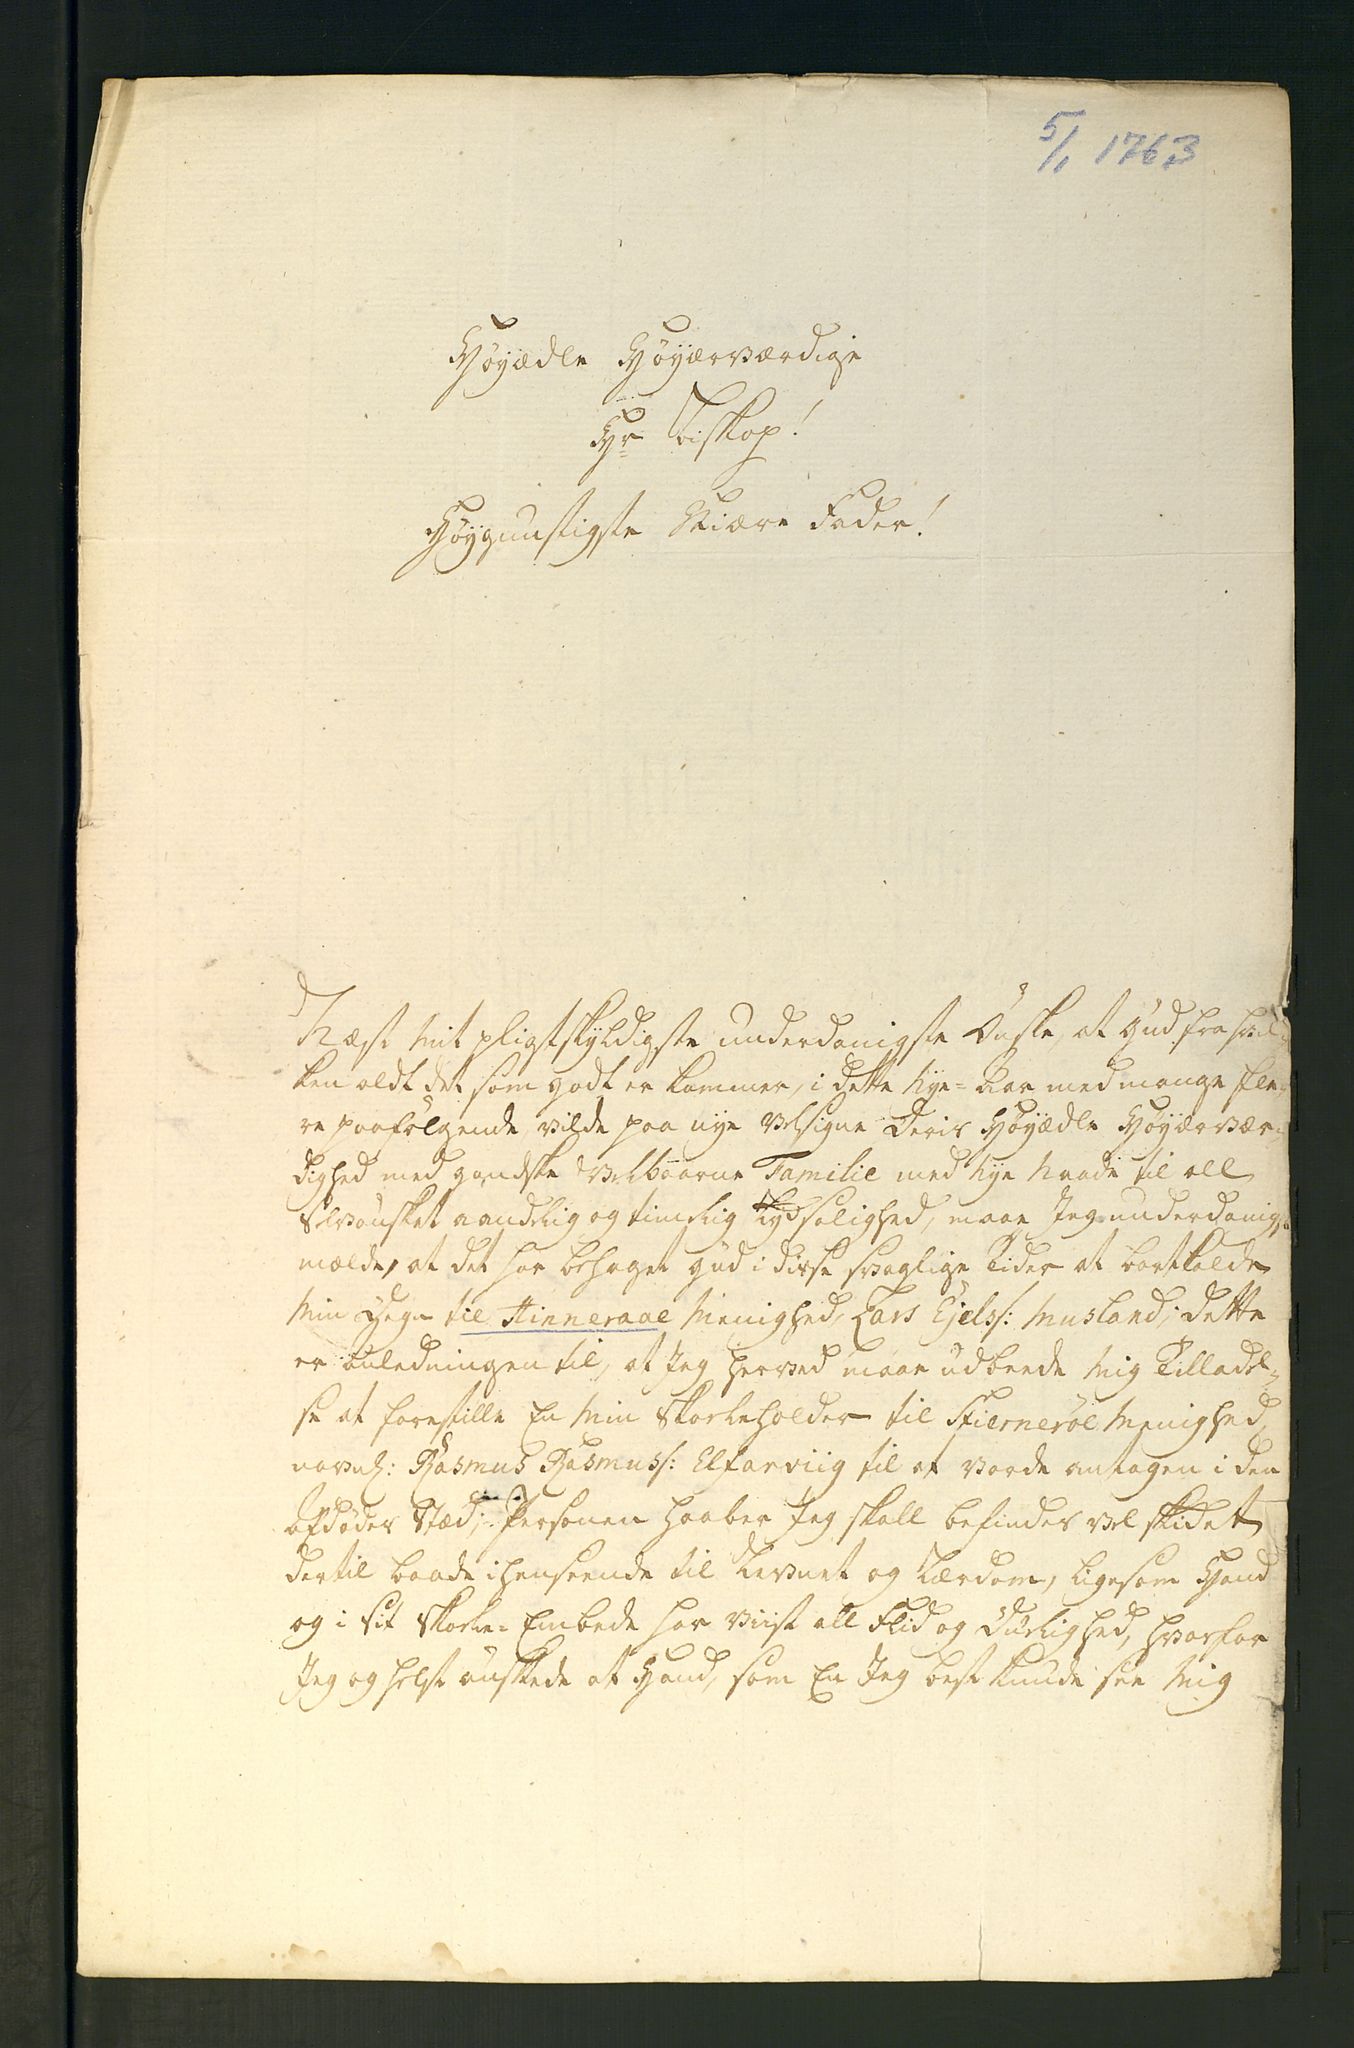 5/1 1763
Høyædle Høyærværdige
Hr Biskop!
Høygunstigste Kiære Fader!
Næst Mit pligtskyldigste underdanigste Ønske, at Gud fra hvil-
ken aldt det som godt er kommer, i dette Nye-Aar med mange fle-
re paafølgende, vilde paa nye Velsigne Deris Høyædle Høyærvær-
dighed med gandske Velbaarne Familie med Nye Naade til all
Selvønsket aandelig og timelig Lyksalighed, maae Jeg underdanigst
melde, at det har behaget Gud i disse svaglige Tider at bortkalde
Min Degn til Hinneraae Menighed, Lars Ejelss: Musland; dette
er Anledningen til, at Jeg herved maae udbeede Mig Tilladel-
se at forestille En Min Skoeleholder til Stiernerøe Menighed,
navnl: Rasmus Rasmuss: Elfarviig til at vorde antagen i den
Afdødes Stæd; Personen haaber Jeg skall befindes vel skicket
dertil baade i henseende til Levnet og Lærdom, ligesom Hand
og i sit Skoele-Embede har viist all Flid og Duelighed, hvorfor
Jeg og helst ønskede at Hand, som En Jeg best kunde see Mig